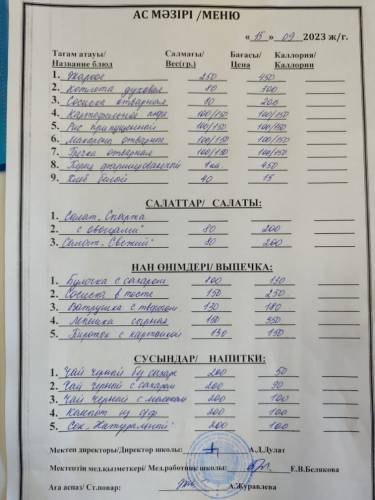 АС МӘЗІРІ /МЕНЮ
« 15 » 09 2023 ж/г.
Тағам атауы/ Салмағы/ Бағасы/ Каллория/
Название блюд Вес(гр.) Цена Каллории
1. Жаркое 250 450
2. Котлета духовая 80 300
3. Сосиска отварная 80 200
4. Картофельное пюре 100/150 100/150
5. Рис припущенный 100/150 100/150
6. Макароны отварные 100/150 100/150
7. Гречка отварная 100/150 100/150
8. Перец фаршированный 1 шт 450
9. Хлеб белый 40 15
САЛАТТАР/ САЛАТЫ:
1. Салат „Спарта
2. с овощами" 80 200
3. Салат „Свежий" 80 200
НАН ӨНІМДЕРІ/ ВЫПЕЧКА:
1. Булочка с сахаром 100 130
2. Сосиска в тесте 150 250
3. Ватрушка с творогом 130 180
4. сырная 150 350
5. Пирожок с картошкой 130 150
СУСЫНДАР/ НАПИТКИ:
1. Чай черный без сахара 200 50
2. Чай черный с сахаром 200 90
3. Чай черный с молоком 200 100
4. Компот из с/ф 200 100
5. Сок „Натуральный" 200 100
Мектеп директоры/Директор школы: А.Д.Дулат
Мектептің мед.қызметкері/ Мед.работник школы: Е.В.Белякова
Аға аспаз/ Ст.повар: А.Журавлева